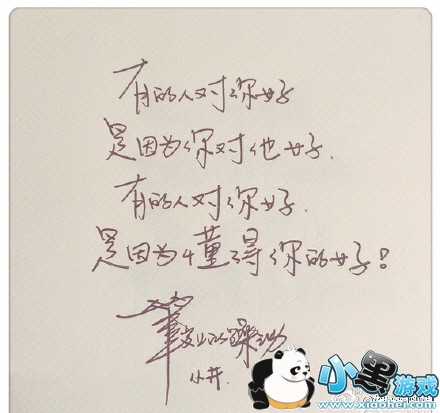 有的人对你好
是因为你对他好.
有的人对你好.
是因为懂得你的好!
上的躁动
小井.
小黑游戏
www.xiaohei.com